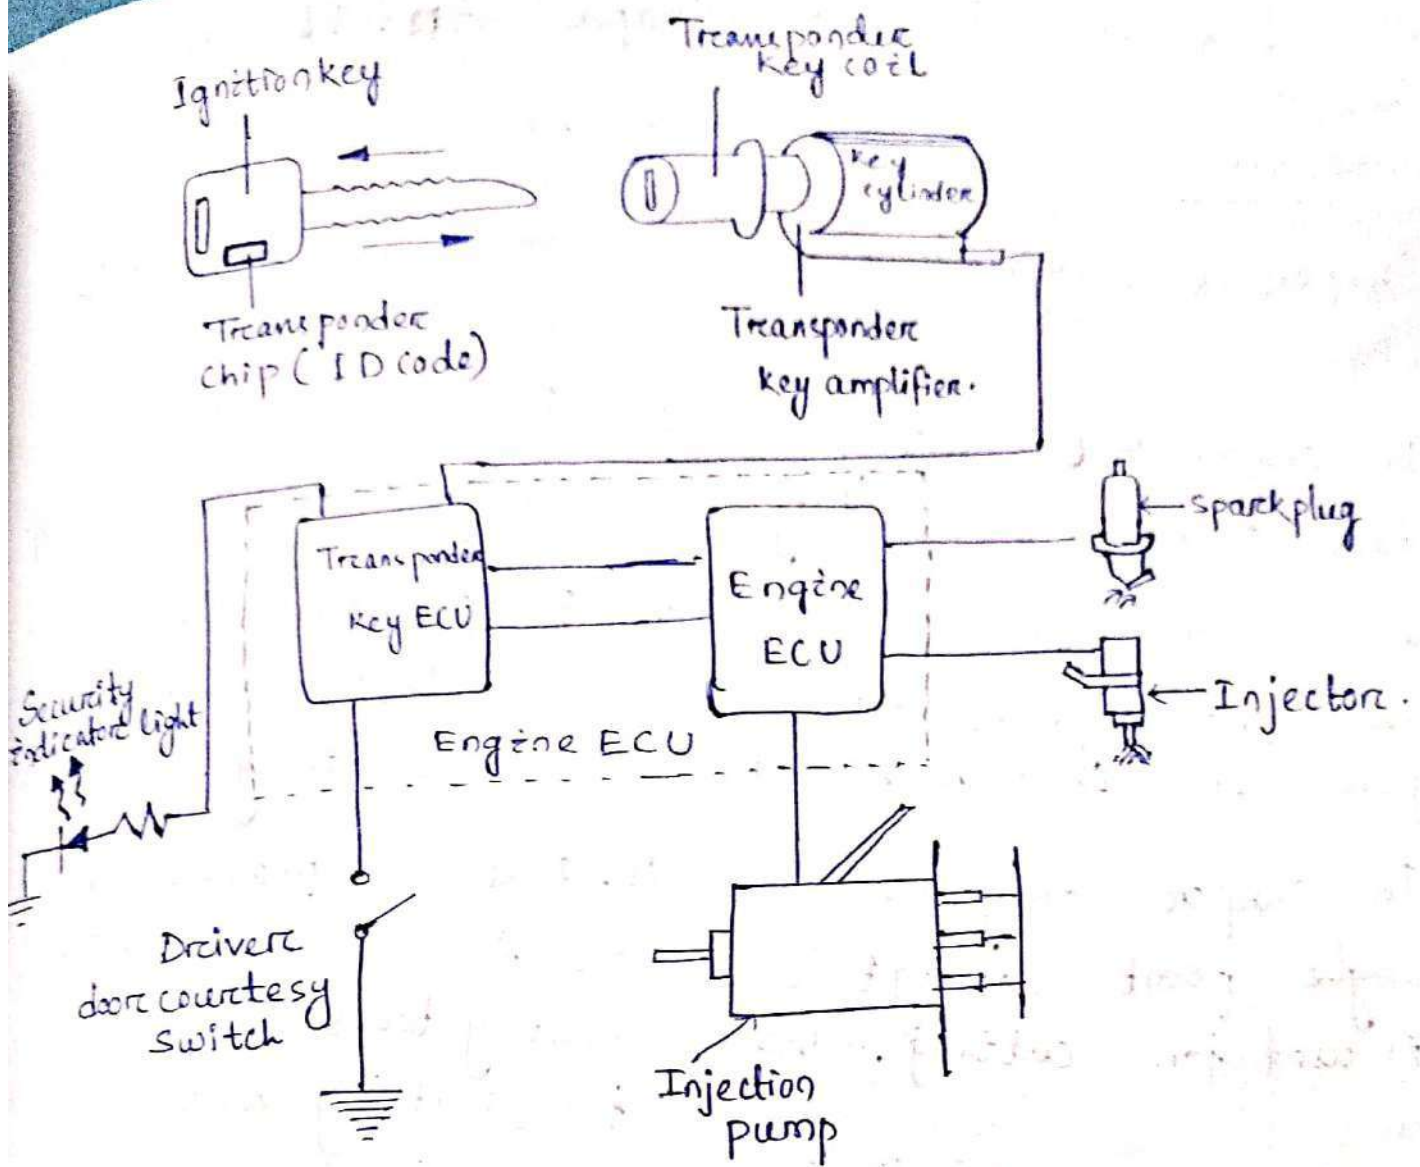 Ignition key
Transponder
key coil
key
cylinder
Transponder
chip ( ID code)
Transponder
key amplifier.
spark plug
Transponder
key ECU
Engine
ECU
Injector.
Security
indicator light
Engine ECU
Driver
door courtesy
switch
Injection
pump